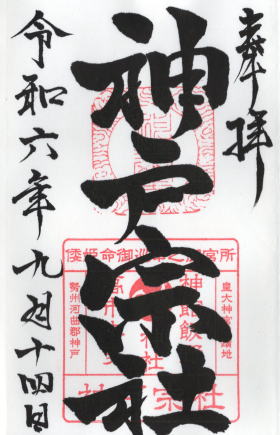 奉拝
神戸宗社
令和六年九月十四日
倭姫命御
所
皇大神宮
神館飯
高市
神社
勢州河曲郡神戸
宗社